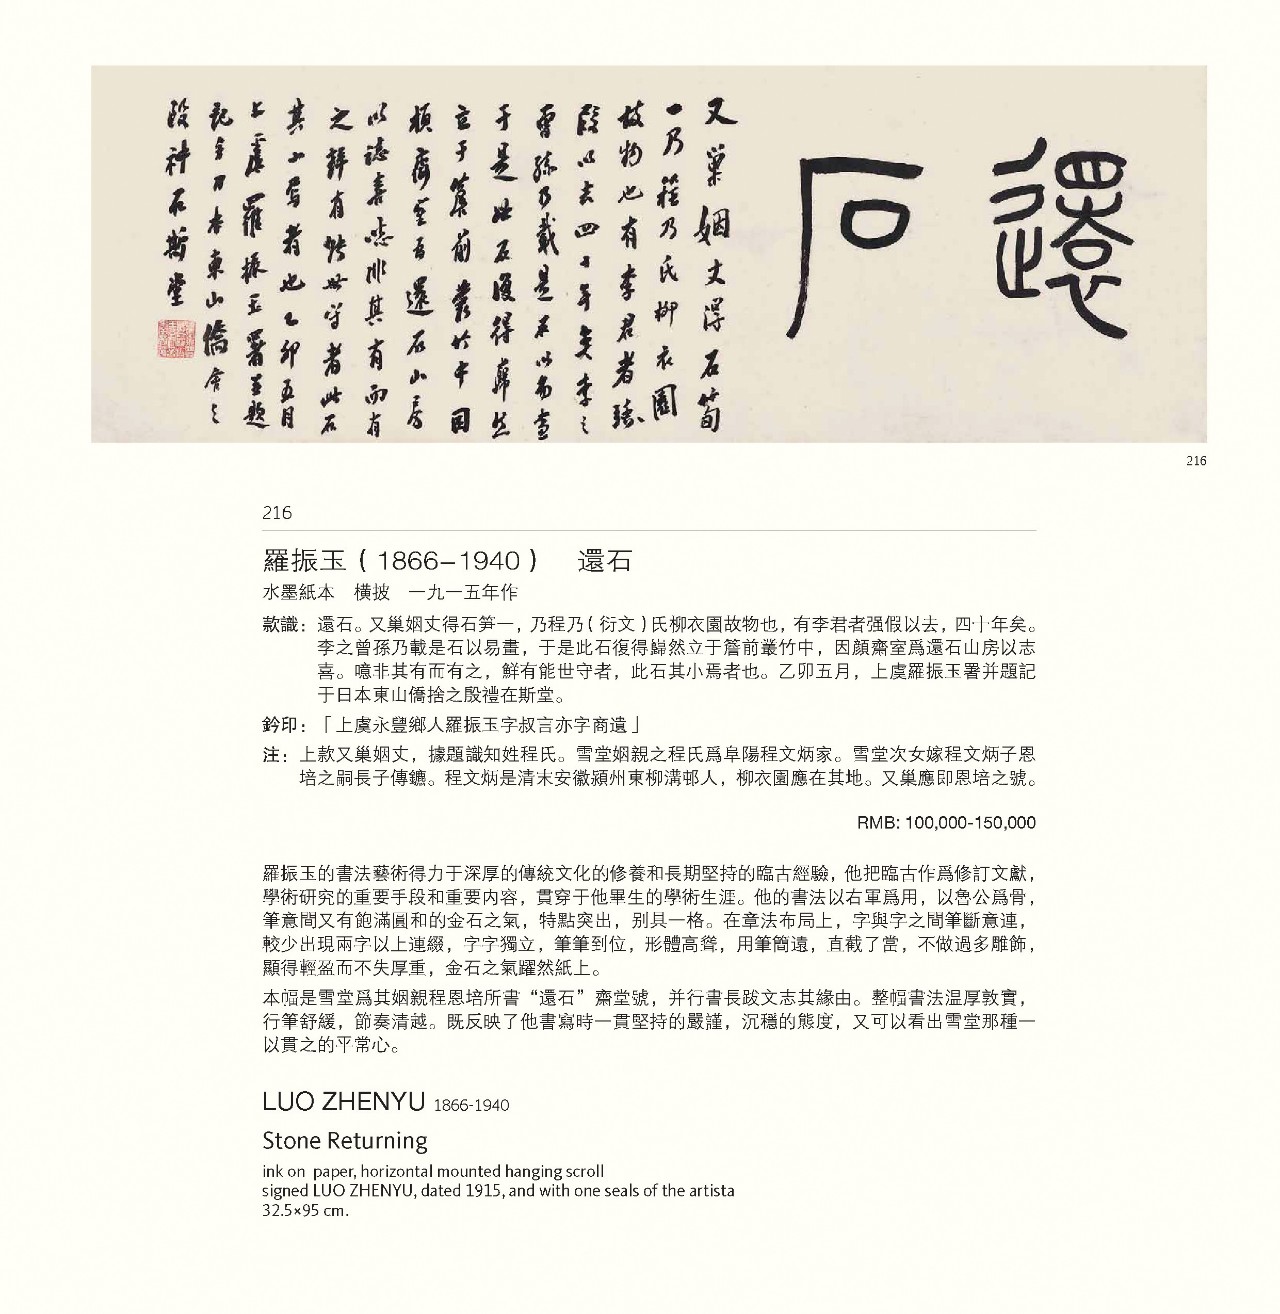 還石
又巢姻丈得石筍
一乃程乃氏柳衣園
故物也有李君者强
假以去四十年矣李之
曾孫乃載是石以易畫
于是此石復得巋然
立于簷前叢竹中因
顏齋室爲還石山房
以誌喜噫非其有而有
之鮮有能世守者此石
其小焉者也乙卯五月
上虞羅振玉署并題
記于日本東山僑舍之
殷禮在斯堂
216
216
羅振玉（1866–1940） 還石
水墨紙本 橫披 一九一五年作
款識：還石。又巢姻丈得石笋一，乃程乃（衍文）氏柳衣園故物也，有李君者强假以去，四十年矣。
李之曾孫乃載是石以易畫，于是此石復得巋然立于簷前叢竹中，因顏齋室爲還石山房以志
喜。噫非其有而有之，鮮有能世守者，此石其小焉者也。乙卯五月，上虞羅振玉署并題記
于日本東山僑捨之殷禮在斯堂。
鈐印：「上虞永豐鄉人羅振玉字叔言亦字商遺」
注：上款又巢姻丈，據題識知姓程氏。雪堂姻親之程氏爲阜陽程文炳家。雪堂次女嫁程文炳子恩
培之嗣長子傳鑣。程文炳是清末安徽潁州東柳溝邨人，柳衣園應在其地。又巢應即恩培之號。
RMB: 100,000-150,000
羅振玉的書法藝術得力于深厚的傳統文化的修養和長期堅持的臨古經驗，他把臨古作爲修訂文獻，
學術研究的重要手段和重要内容，貫穿于他畢生的學術生涯。他的書法以右軍爲用，以魯公爲骨，
筆意間又有飽滿圓和的金石之氣，特點突出，别具一格。在章法布局上，字與字之間筆斷意連，
較少出現兩字以上連綴，字字獨立，筆筆到位，形體高聳，用筆簡遠，直截了當，不做過多雕飾，
顯得輕盈而不失厚重，金石之氣躍然紙上。
本幅是雪堂爲其姻親程恩培所書“還石”齋堂號，并行書長跋文志其緣由。整幅書法温厚敦實，
行筆舒緩，節奏清越。既反映了他書寫時一貫堅持的嚴謹，沉穩的態度，又可以看出雪堂那種一
以貫之的平常心。
LUO ZHENYU 1866-1940
Stone Returning
ink on paper, horizontal mounted hanging scroll
signed LUO ZHENYU, dated 1915, and with one seals of the artista
32.5×95 cm.